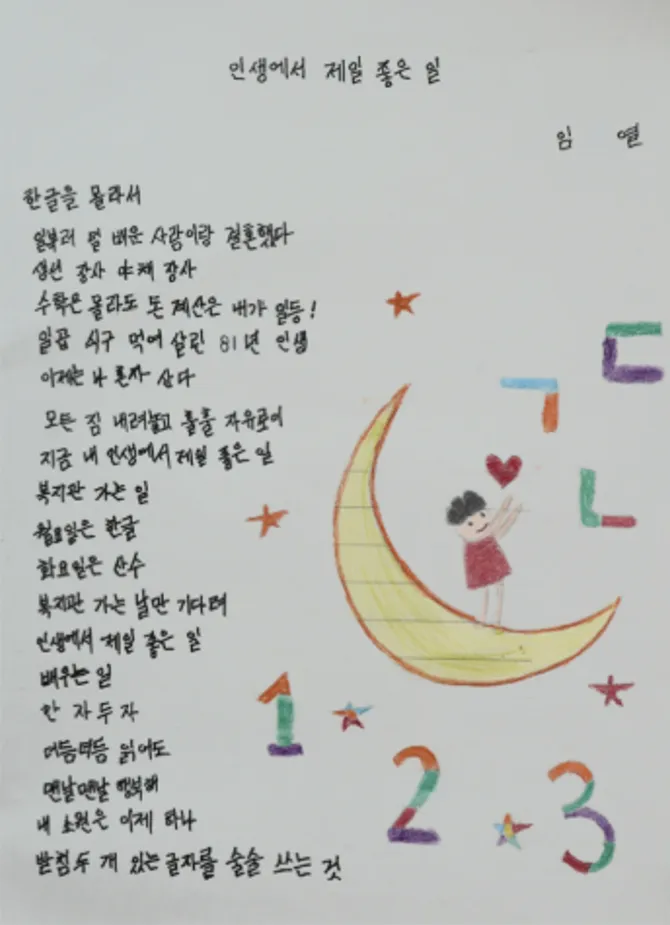 인생에서 제일 좋은 일
임 열
한글을 몰라서
일부러 덜 배운 사람이랑 결혼했다
생선 장사 야채 장사
수학은 몰라도 돈 계산은 내가 일등!
일곱 식구 먹여 살린 81년 인생
이제는 나 혼자 산다
모든 짐 내려놓고 훌훌 자유로이
지금 내 인생에서 제일 좋은 일
복지관 가는 일
월요일은 한글
화요일은 산수
복지관 가는 날만 기다려
인생에서 제일 좋은 일
배우는 일
한 자 두 자
더듬더듬 읽어도
맨날맨날 행복해
내 소원은 이제 하나
받침 두 개 있는 글자를 술술 쓰는 것
ㄱ ㄷ
ㄴ
1 2 3